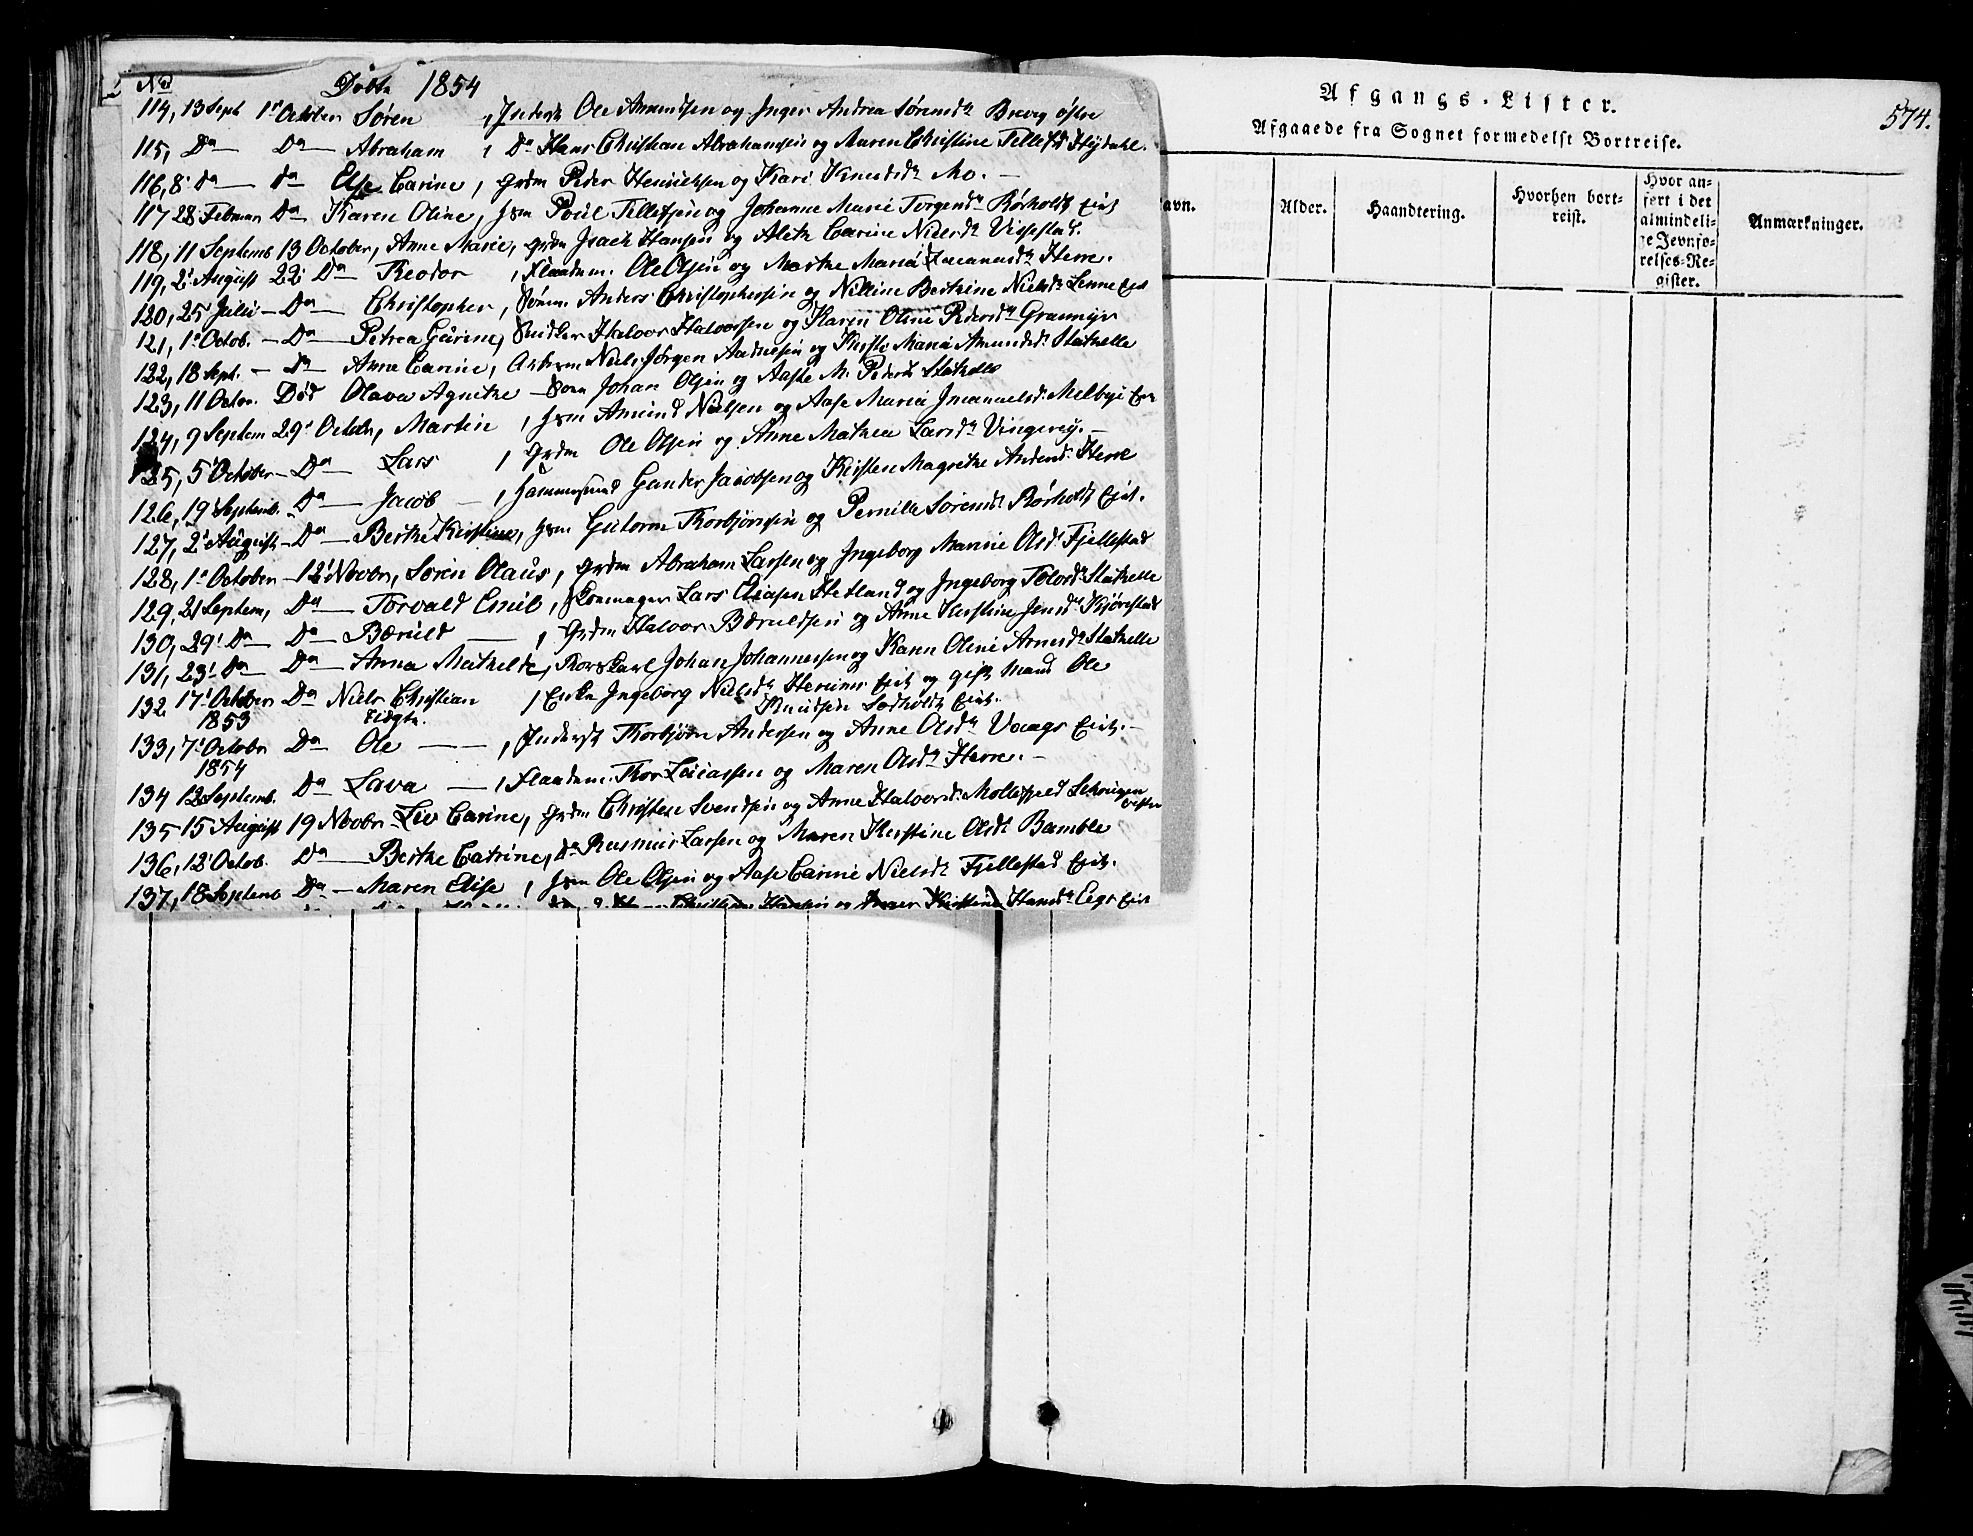 No Døbte 1854
114, 13 Sept 1st October Søren, Inderst Ole Amundsen og Inger Andrea Sørensdr Brevig østre
115, Da Da Abraham, Da Hans Christian Abrahamsen og Maren Christine Tellefsd
116, 8' Da da Else Carine, Grdm Peder Henrichsen og Kari Knudsdr Mo.
117 28 Februar Da Karen Oline, Jsm Poul Tellefsen og Johanne Marie Torgersdr Rørholdt Eiet
118, 11 Septemb 13 October, Anne Marie, grdm Isach Hansen og Aleth Carine Nielsdr Vissestad.
119, 2' August 22' Da Theodor, Flaadm. Ole Olsen og Marthe Maria Herre.
120, 25 Julii Da Christopher, Tømm. Anders Christophersen og Nilline Bertine Nielsdr
121, 1' Octob. Da Petrea Gurine, Snidker Halvor Halvorsen og Karen Oline Pedersdr
122, 18 Sept. Da Anne Carine, Arbm Niels Jørgen Aadnesen og Maria Amundsdr Stathelle
123, 11 Octor. Død Olava Agnethe Johan Olsen og Aaste M. Pedersdr Stathelle
124, 9 Septem 29' October, Martin, Jsm Amund Nielsen og Aase Maria Imanuelsd. Melbye Eie
125, 5' October Da Lars, Grdm Ole Olsen og Anne Mathea Larsdr
126, 19' Septemb. Da Jacob, Hammersmed Gunder Jacobsen og Kirsten Magrethe Andersd. Herre
127, 2' August Da Berthe Kirstine, Jsm. Gutorm Thorbjørnsen og Pernille Sørensdr Rørholdt Eiet.
128, 1' October 12' Novbr, Søren Olaus, Grdm Abraham Larsen og Ingeborg Marine Olsdr Fjellestad
129, 21 Septem, Da Torvald Emil, Skomager Lars Eliasen Hetland og Ingeborg Tolvsdr Stathelle
130, 29' Da Da Bæruld, Grdm Halvor Bæruldsen og Anne Kirstine Jensdr Kjørestad
131, 23' Da Da Anna Mathelde, Carl Johan Johannessen og Karen Oline Arnesdr Stathelle
132 17' October Da Niels Christian, Enke Ingeborg Nielsdr Eiet og gift Mand Ole
1853 Knudsen Eiet.
133, 7' Octobr Da Ole, Inderst Thorbjørn Andersen og Anne Olsdr Vaags Eiet.
1854
134 12 Septemb. Da Lava, Flaadm. Thor og Maren Olsdr Herre.
135 15 August 19 Novbr Liv Carine, Grdm Christen Svendsen og Anne Halvorsd.
136, 12 Octob. Da Berthe Catrine, Da Rasmus Larsen og Maren Kirstine Olsdr Bamble
137, 18 Septemb Da Maren Elise, Jsm Ole Olsen og Aase Carine Nielsdr Fjellestad Eiet.
Afgangs-Lister.
574.
Afgaaede fra Sognet formedelst Bortreise.
avn.
Alder.
Haandtering.
Hvorhen bort-
reist.
Hvor an-
ført i det
almindeli-
ge Jevnfø-
relses-Re-
gister.
Anmærkninger.